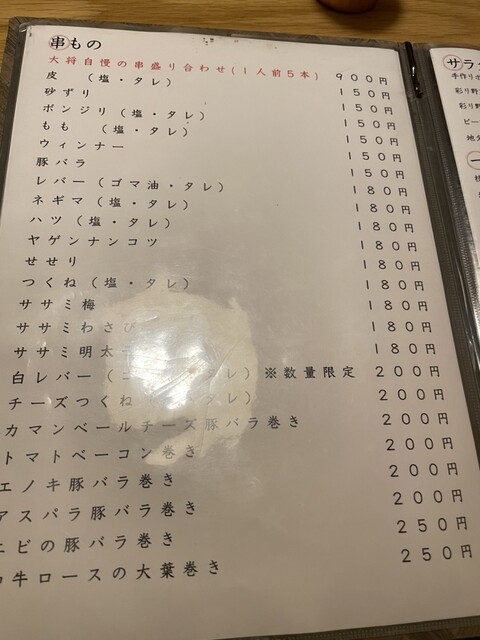 串もの
大将自慢の串盛り合わせ(1人前5本) 900円
皮 (塩・タレ) 150円
砂ずり 150円
ボンジリ(塩・タレ) 150円
もも (塩・タレ) 150円
ウィンナー 150円
豚バラ 150円
レバー(ゴマ油・タレ) 180円
ネギマ(塩・タレ) 180円
ハツ(塩・タレ) 180円
ヤゲンナンコツ 180円
せせり 180円
つくね(塩・タレ) 180円
ササミ梅 180円
ササミわさび 180円
ササミ明太 180円
白レバー( レ)※数量限定 200円
チーズつくね タレ) 200円
カマンベールチーズ豚バラ巻き 200円
トマトベーコン巻き 200円
エノキ豚バラ巻き 200円
アスパラ豚バラ巻き 200円
エビの豚バラ巻き 250円
牛ロースの大葉巻き 250円
サラ
手作り
彩り野
彩り野